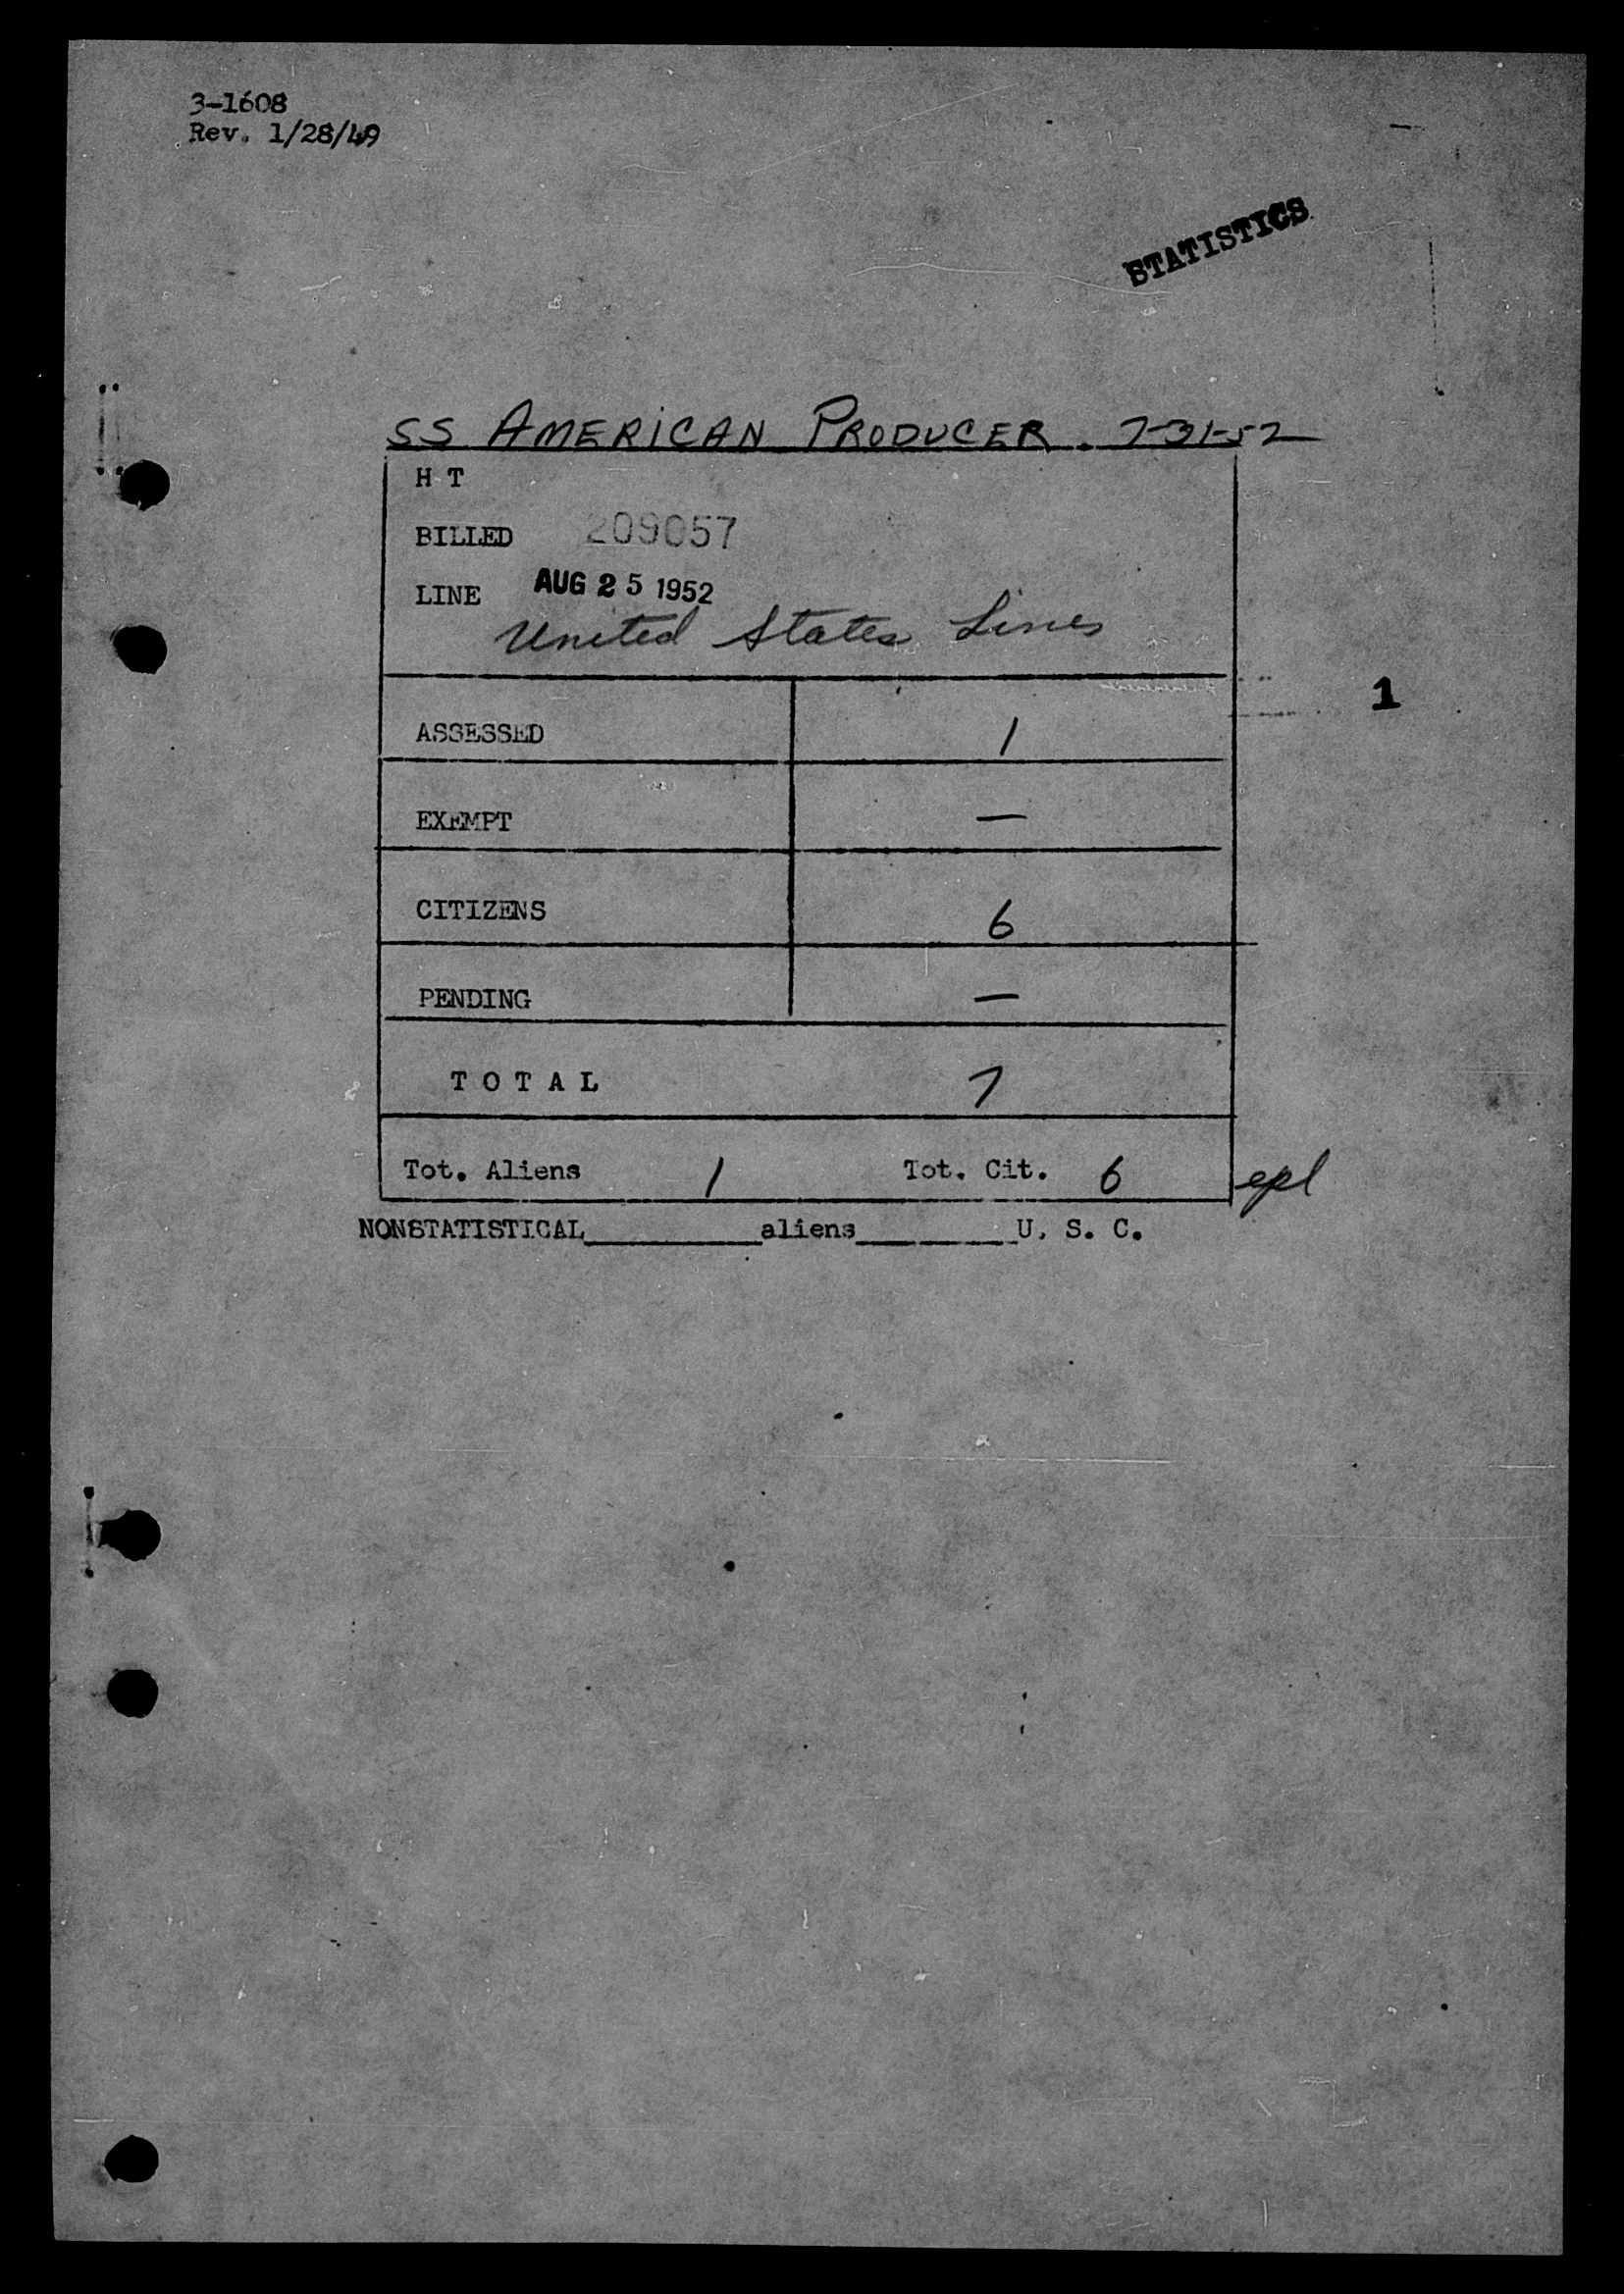 3-1608
Rev. 1/28/49
STATISTICS
SS AMERICAN PRODUCER. 7-31-52
H T
BILLED 209057
LINE AUG 25 1952
United States Lines
1
ASSESSED 1
EXEMPT —
CITIZENS 6
PENDING —
T O T A L 7
Tot. Aliens 1 Tot. Cit. 6 epl
NONSTATISTICAL__________aliens__________U. S. C.